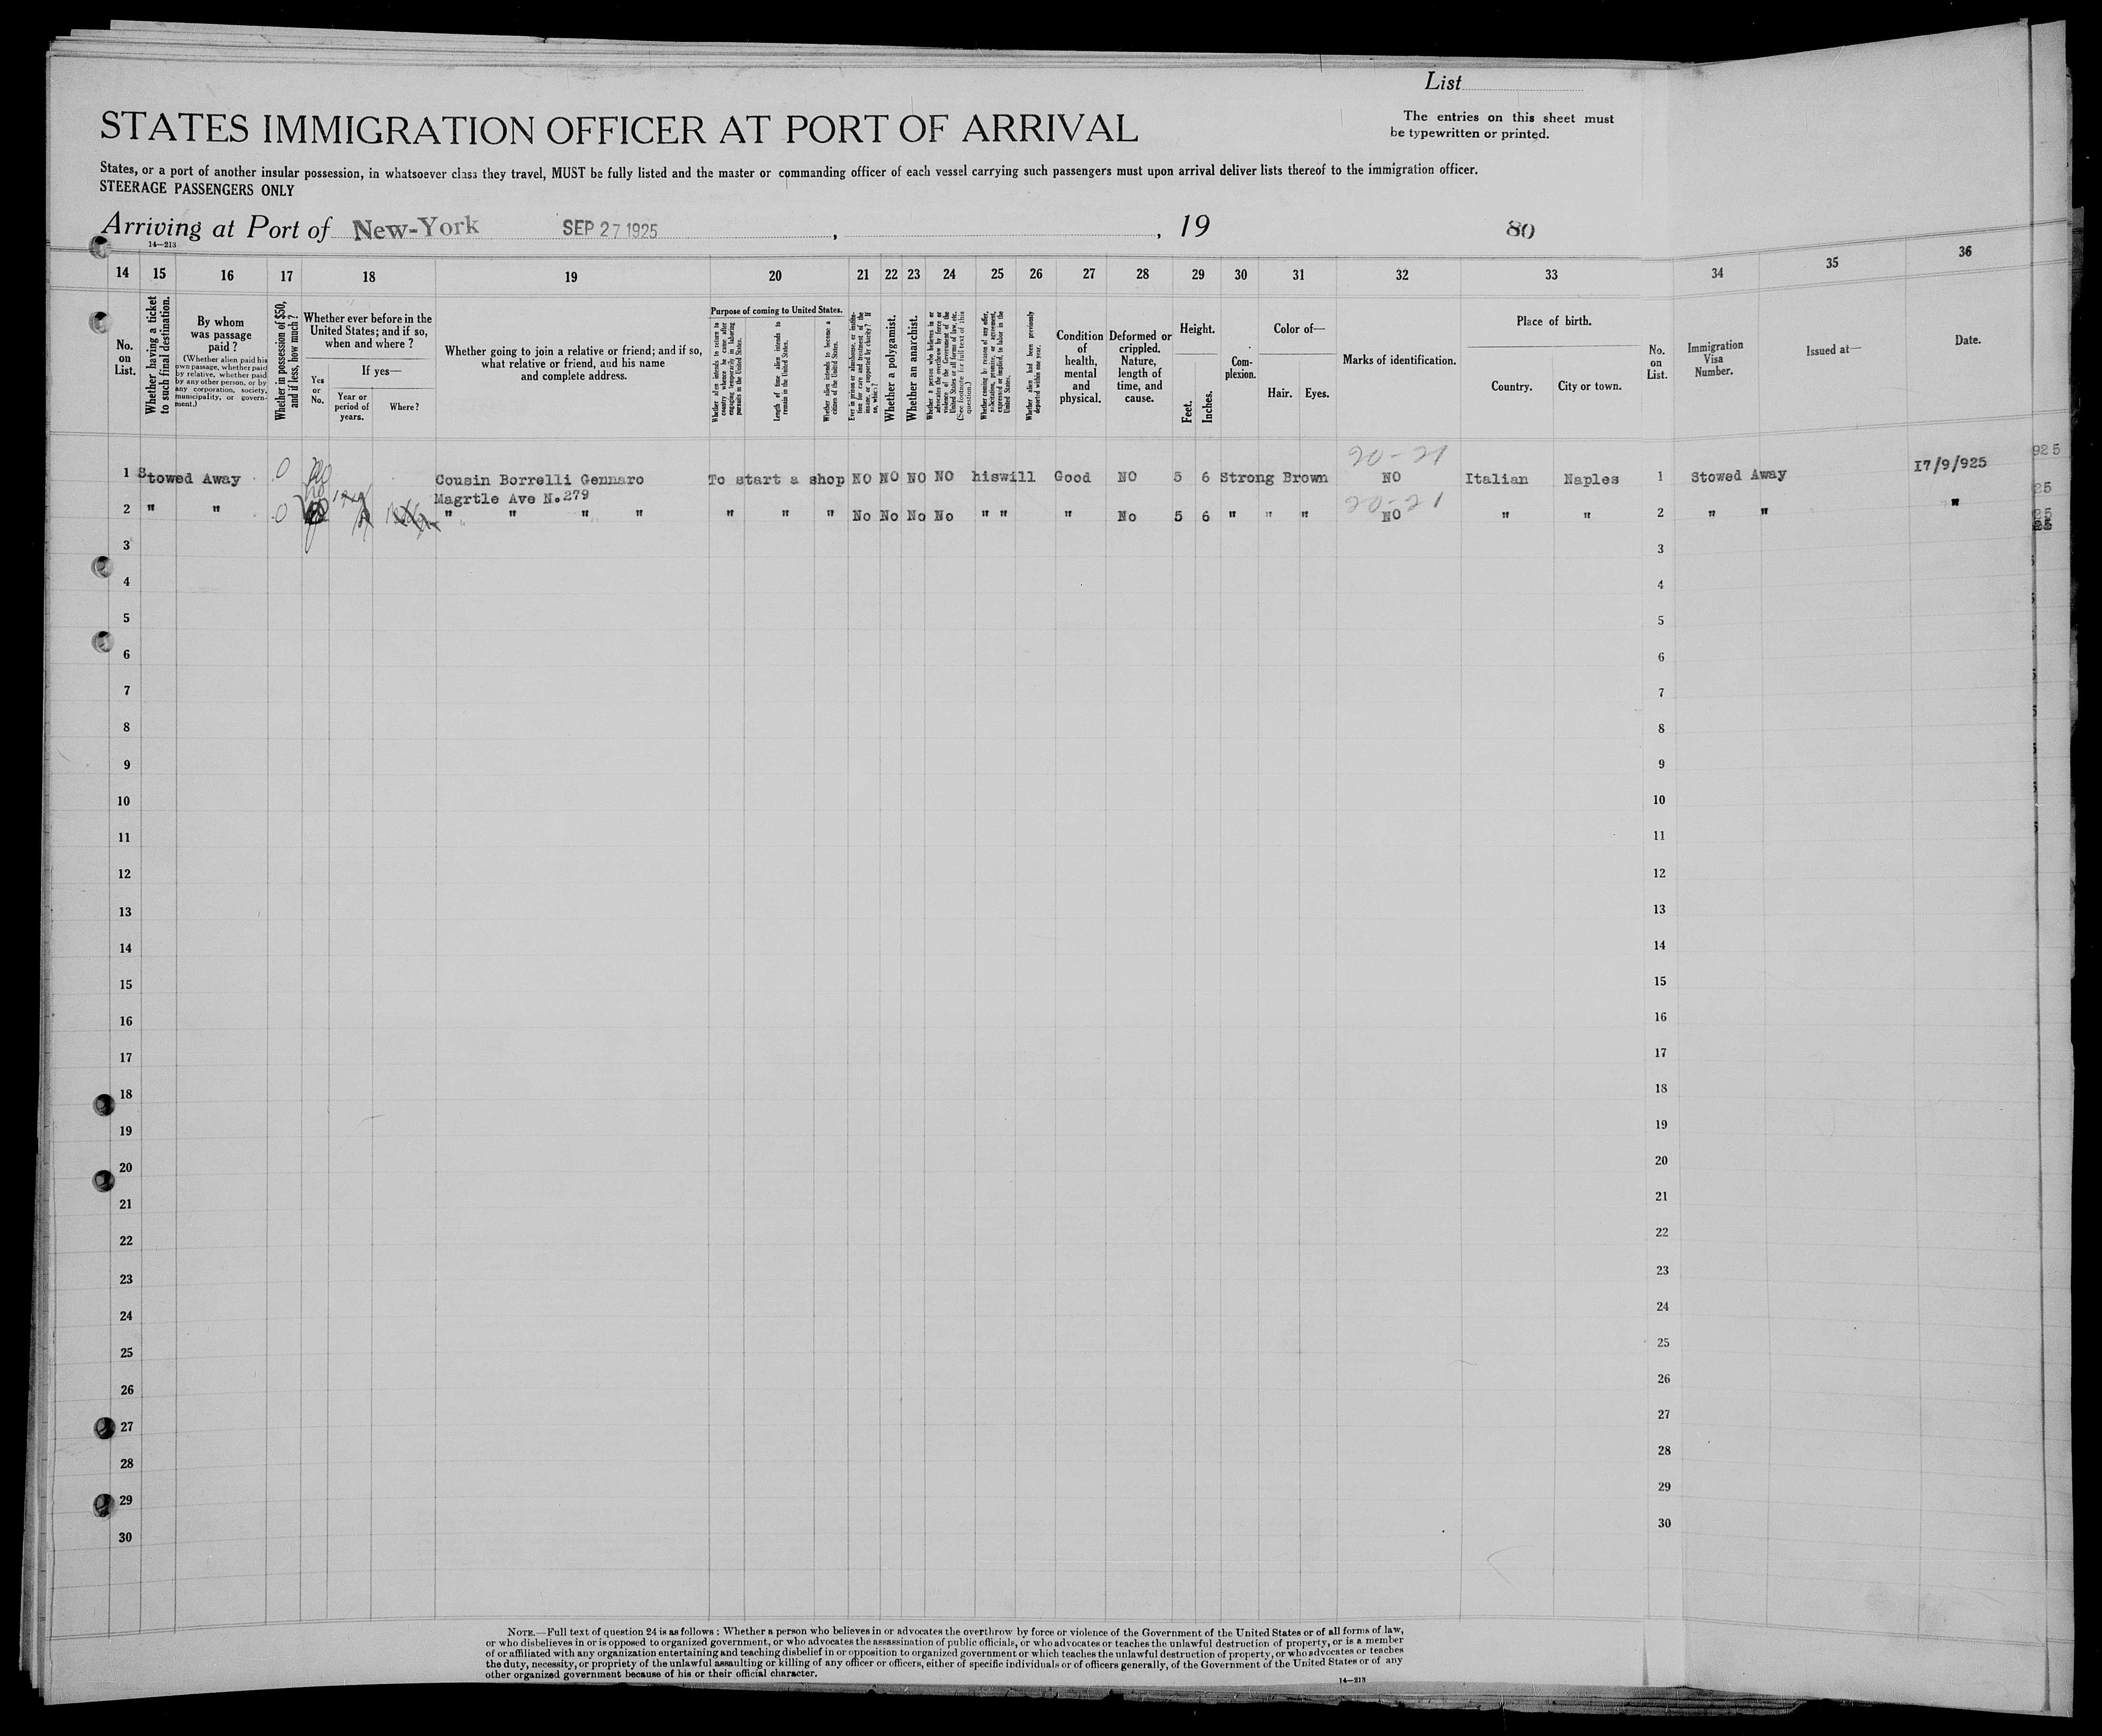 List
The entries on this sheet must
be typewritten or printed.
STATES IMMIGRATION OFFICER AT PORT OF ARRIVAL
States, or a port of another insular possession, in whatsoever class they travel, MUST be fully listed and the master or commanding officer of each vessel carrying such passengers must upon arrival deliver lists thereof to the immigration officer.
STEERAGE PASSENGERS ONLY
Arriving at Port of New-York SEP 27 1925 , , 19 80
14—213
14 15 16 17 18 19 20 21 22 23 24 25 26 27 28 29 30 31 32 33 34 35 36
No.
on
List.
Whether having a ticket
to such final destination.
By whom
was passage
paid?
(Whether alien paid his
own passage, whether paid
by relative, whether paid
by any other person, or by
any corporation, society,
municipality, or govern-
ment.)
Whether in possession of $50,
and if less, how much?
Whether ever before in the
United States; and if so,
when and where?
Yes
or
No.
If yes—
Year or
period of
years.
Where?
Whether going to join a relative or friend; and if so,
what relative or friend, and his name
and complete address.
Purpose of coming to United States.
Whether alien intends to return to
country whence he came after
engaging temporarily in laboring
pursuits in the United States.
Length of time alien intends to
remain in the United States.
Whether alien intends to become a
citizen of the United States.
Ever in prison or almshouse, or institu-
tion for care and treatment of the
insane, or supported by charity? If
so, which?
Whether a polygamist.
Whether an anarchist.
Whether a person who believes in or
advocates the overthrow by force or
violence of the Government of the
United States or all forms of law, etc.
(See footnote for full text of this
question.)
Whether coming by reason of any offer,
solicitation, promise, or agreement,
expressed or implied, to labor in the
United States.
Whether alien had been previously
deported within one year.
Condition
of
health,
mental
and
physical.
Deformed or
crippled.
Nature,
length of
time, and
cause.
Height.
Feet.
Inches.
Com-
plexion.
Color of—
Hair.
Eyes.
Marks of identification.
Place of birth.
Country.
City or town.
No.
on
List.
Immigration
Visa
Number.
Issued at—
Date.
20-21
1 Stowed Away 0 no Cousin Borrelli Gennaro To start a shop NO NO NO NO hiswill Good NO 5 6 Strong Brown NO Italian Naples 1 Stowed Away 17/9/925
Magrtle Ave N.279
20-21
2 " " 0 " " " " " " " No No No No " " " No 5 6 " " " NO " " 2 " " "
3 3
4 4
5 5
6 6
7 7
8 8
9 9
10 10
11 11
12 12
13 13
14 14
15 15
16 16
17 17
18 18
19 19
20 20
21 21
22 22
23 23
24 24
25 25
26 26
27 27
28 28
29 29
30 30
925
25
25
NOTE.—Full text of question 24 is as follows: Whether a person who believes in or advocates the overthrow by force or violence of the Government of the United States or of all forms of law,
or who disbelieves in or is opposed to organized government, or who advocates the assassination of public officials, or who advocates or teaches the unlawful destruction of property, or is a member
of or affiliated with any organization entertaining and teaching disbelief in or opposition to organized government or which teaches the unlawful destruction of property, or who advocates or teaches
the duty, necessity, or propriety of the unlawful assaulting or killing of any officer or officers, either of specific individuals or of officers generally, of the Government of the United States or of any
other organized government because of his or their official character.
14—213